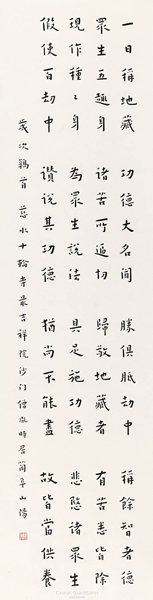 一日稱地藏 功德大名聞 勝俱胝劫中 稱餘智者德
眾生五趣身 諸苦所逼切 歸敬地藏者 有苦悉皆除
現作種〻身 為眾生說法 具足施功德 悲愍諸眾生
假使百劫中 讚說其功德 猶尚不能盡 故皆當供養
歲次鶉首 慈水十輪寺最吉祥院沙門僧胤時居蘭阜山陽